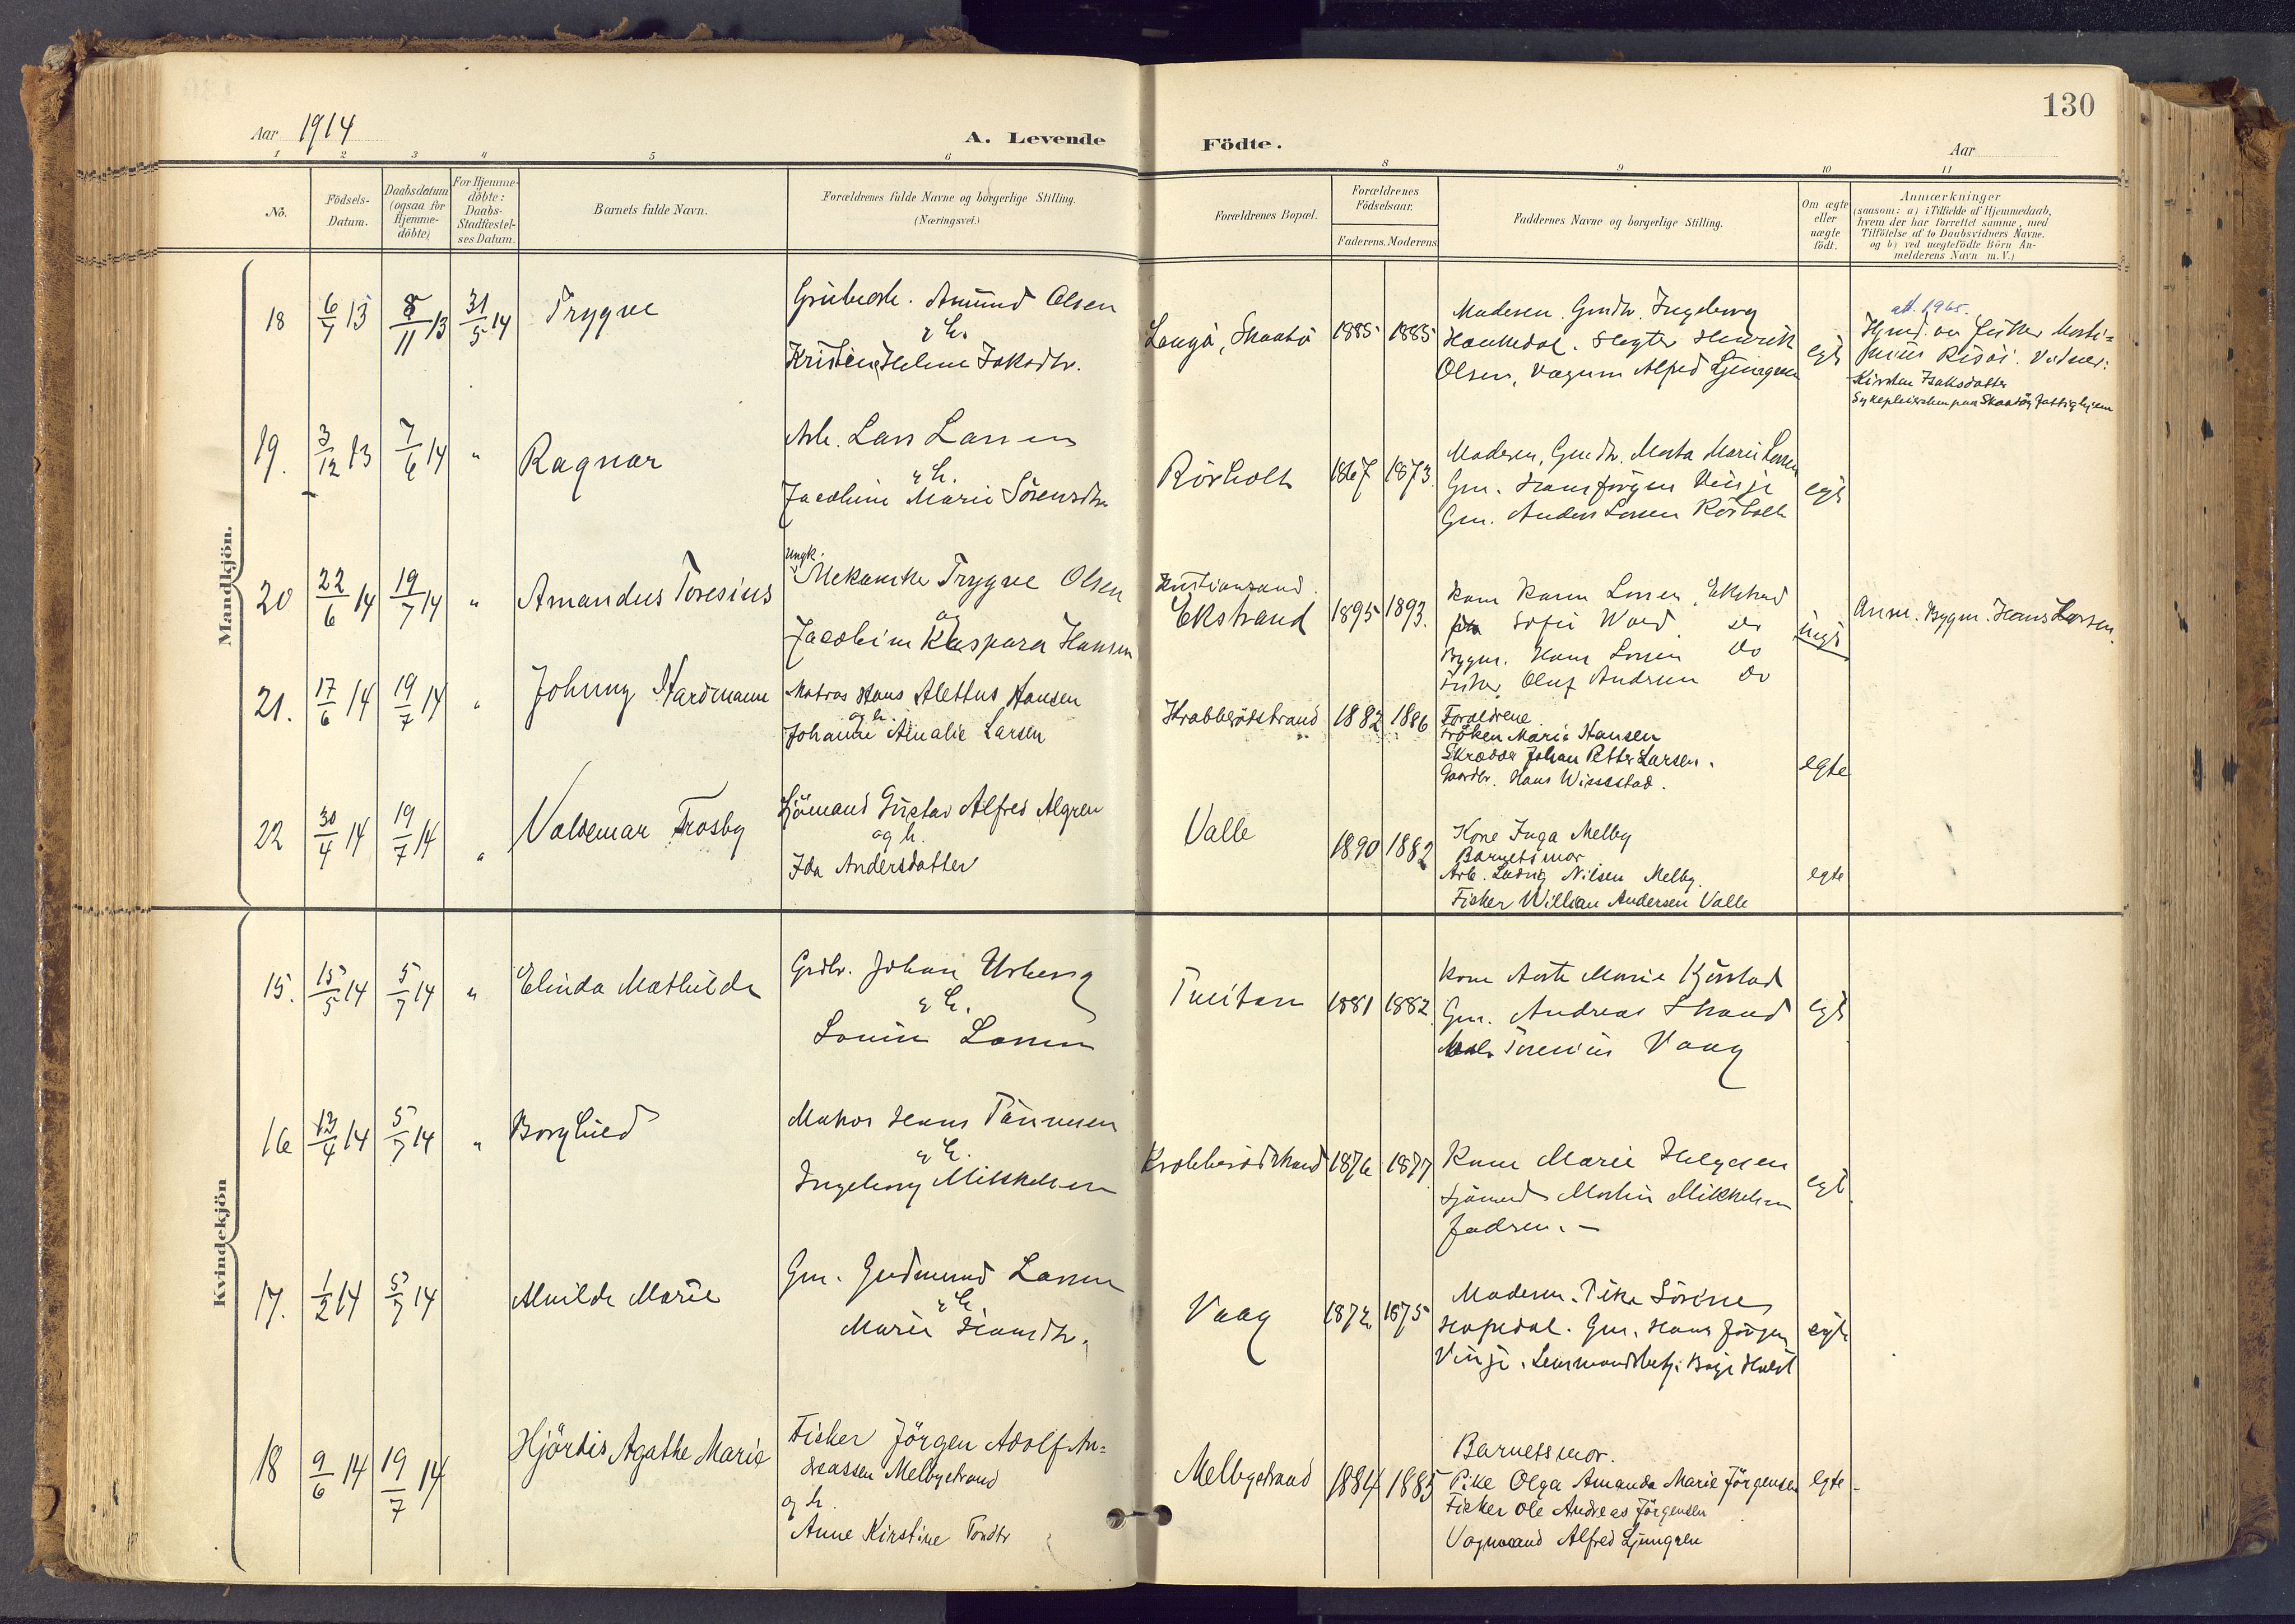 130
Aar 1914
A. Levende Födte.
Aar
1 2 3 4 5 6 8 9 10 11
No.
Födsels-
Datum.
Daabsdatum
(ogsaa for
Hjemme-
döbte)
For Hjemme-
döbte:
Daabs-
Stadfæstel-
ses Datum.
Barnets fulde Navn.
Forældrenes fulde Navne og borgerlige Stilling.
(Næringsvei.)
Forældrenes Bopæl.
Forældrenes
Födselsaar.
Faderens. Moderens
Faddernes Navne og borgerlige Stilling.
Om ægte
eller
uægte
födt.
Anmærkninger
(saasom: a) i Tilfælde af Hjemmedaab,
hvem der har forrettet samme, med
Tilföielse af to Daabsvidners Navne.
og b) ved uægtefödte Börn An-
melderens Navn m. V.)
Mandkjön.
18 6/7 13 8/11 13 31/5 14 Trygve
Amund Olsen
& h.
Langö, Skaatö 1885 1885
Moderen. Ingeborg
Henrik
Olsen, Alfred
egte
att. 1965.
Risöi. Vidner:
Kirsten Isaksdatter
19. 3/12 13 7/6 14 " Ragnar
Arb. Lars Larsen
& h.
Jacobine Marie Sörensdtr
Rörholt 1867 1873.
Moderen, Marta Marie Larsen
Gm. Hans Jörgen Vinje
Gm. Anders Larsen Rörholt
egte
20 22/6 14 19/7 14 " Amandus Toresius
Ungk.
Mekaniker Trygve Olsen
og
Jacobine Kaspara Hansen
Kristiansand.
Ekstrand 1895 1893.
Kone Karen Larsen, Ekstrand
Sofie Wold do
Bygm. Hans Larsen do
Fisker Oluf Andersen do
uegte
Anm. Bygm. Hans Larsen.
21. 17/6 14 19/7 14 " Johnny Hardmann
Matros Hans Alettus Hansen
og h.
Johanne Amalie Larsen
Krabberödstrand 1882 1886
Forældrene.
Fröken Marie Hansen
Skrædder Johan Petter Larsen.
Gaardbr. Hans Wissestad.
egte
22 30/4 14 19/7 14 " Valdemar Frosby
Sjömand Gustav Alfred Algren
og h.
Ida Andersdatter
Valle 1890 1882
Kone Inga Melby
Barnets mor
Arb. Ludvig Nilsen Melby.
Fisker William Andersen Valle
egte
Kvindekjön
15. 15/5 14 5/7 14 " Elinda Mathilde
Grdbr. Johan Urberg
& h.
Lovise Larsen
Tveiten 1881 1882.
Kone Marie
Gm. Andreas Strand
Toresius Vaag
egte
16 13/4 14 5/7 14 " Borghild
Matros Hans
& h.
Ingeborg Mikkelsen
Krabberödstrand 1876 1877
Kone Marie Helgesen
Sjömand Martin Mikkelsen
Faderen. —
egt.
17. 1/2 14 5/7 14 Alvilde Marie
Gm. Gudmund Larsen
& h.
Marie Hansdtr.
Vaag 1872 1875
Moderen. Pike Sörine
Hans Jörgen
Vinje.
egte
18 9/6 14 19/7 14 Hjördis Agathe Marie
Fisker Jörgen Adolf An=
dreassen Melbystrand
og h.
Anne Kirstine Tordtr
Melbystrand 1884 1885
Barnets mor.
Pike Olga Amanda Marie Jörgensen
Fisker Ole Andreas Jörgensen
Vognmand Alfred Ljunggren
egte-